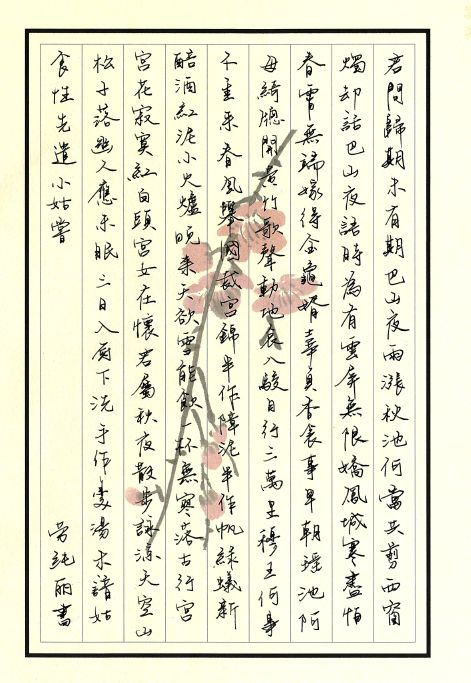 君問歸期未有期巴山夜雨漲秋池何當共剪西窗
燭却話巴山夜語時為有雲屏無限嬌鳳城寒盡怕
春宵無端嫁得金龜婿辜負香衾事早朝瑤池阿
母綺牕開黃竹歌聲動地哀八駿日行三萬里穆王何事
不重來春風舉國裁宮錦半作障泥半作帆綠蟻新
醅酒紅泥小火爐晚來天欲雪能飲一杯無寥落古行宮
宮花寂寞紅白頭宮女在懷君屬秋夜散步詠涼天空山
松子落幽人應未眠三日入厨下洗手作羹湯未諳姑
食性先遣小姑嘗
純丽書